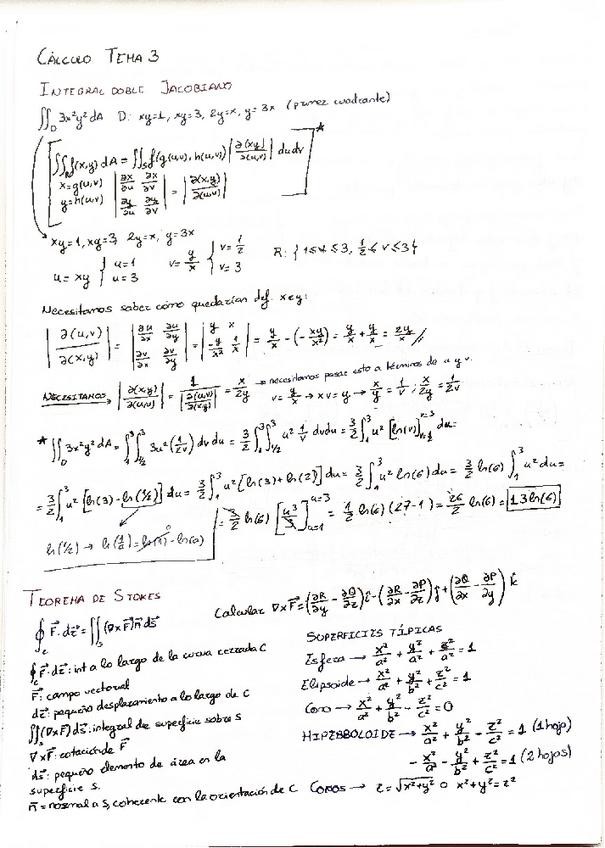 CÁLCULO TEMA 3
INTEGRAL DOBLE JACOBIANO
∬_D 3x²y² dA D: xy=1, xy=3, 2y=x, y=3x (primer cuadrante)
∬_R f(x,y) dA = ∬_S f(g(u,v), h(u,v)) |∂(x,y)/∂(u,v)| du dv *
x=g(u,v) y=h(u,v) |∂x/∂u ∂x/∂v; ∂y/∂u ∂y/∂v| = |∂(x,y)/∂(u,v)|
xy=1, xy=3, 2y=x, y=3x
u=xy { u=1 u=3 v=y/x { v=1/2 v=3 R: {1≤u≤3, 1/2≤v≤3}
Necesitamos saber cómo quedarían def. x e y:
|∂(u,v)/∂(x,y)| = |∂u/∂x ∂u/∂y; ∂v/∂x ∂v/∂y| = |y x; -y/x² 1/x| = y/x - (-xy/x²) = y/x + y/x = 2y/x //
NECESITAMOS |∂(x,y)/∂(u,v)| = 1/|∂(u,v)/∂(x,y)| = x/2y → necesitamos pasar esto a términos de u y v.
v=y/x → xv=y → x/y = 1/v ; x/2y = 1/2v
* ∬_D 3x²y² dA = ∫₁³ ∫_{1/2}³ 3u² (1/2v) dv du = 3/2 ∫₁³ ∫_{1/2}³ u² 1/v dv du = 3/2 ∫₁³ u² [ln(v)]_{v=1/2}^{v=3} du =
= 3/2 ∫₁³ u² [ln(3) - ln(1/2)] du = 3/2 ∫₁³ u² [ln(3) + ln(2)] du = 3/2 ∫₁³ u² ln(6) du = 3/2 ln(6) ∫₁³ u² du =
= 3/2 ln(6) [u³/3]_{u=1}^{u=3} = 1/2 ln(6) (27-1) = 26/2 ln(6) = 13 ln(6)
ln(1/2) → ln(1/2) = ln(1) - ln(2)
0
TEOREMA DE STOKES
Calcular ∇×F⃗ = (∂R/∂y - ∂Q/∂z) î - (∂R/∂x - ∂P/∂z) ĵ + (∂Q/∂x - ∂P/∂y) k̂
∮_C F⃗·dr⃗ = ∬_S (∇×F⃗) n⃗ dS⃗
∮_C F⃗·dr⃗: int a lo largo de la curva cerrada C
F⃗: campo vectorial
dr⃗: pequeño desplazamiento a lo largo de C
∬_S (∇×F⃗) dS⃗: integral de superficie sobre S
∇×F⃗: rotación de F⃗
dS⃗: pequeño elemento de área en la
superficie S.
n⃗ = normal a S, coherente con la orientación de C
SUPERFICIES TÍPICAS
Esfera → x²/a² + y²/a² + z²/a² = 1
Elipsoide → x²/a² + y²/b² + z²/c² = 1
Cono → x²/a² + y²/b² - z²/c² = 0
HIPERBOLOIDE → x²/a² + y²/b² - z²/c² = 1 (1 hoja)
- x²/a² - y²/b² + z²/c² = 1 (2 hojas)
CONOS → z = √(x²+y²) o x²+y²=z²